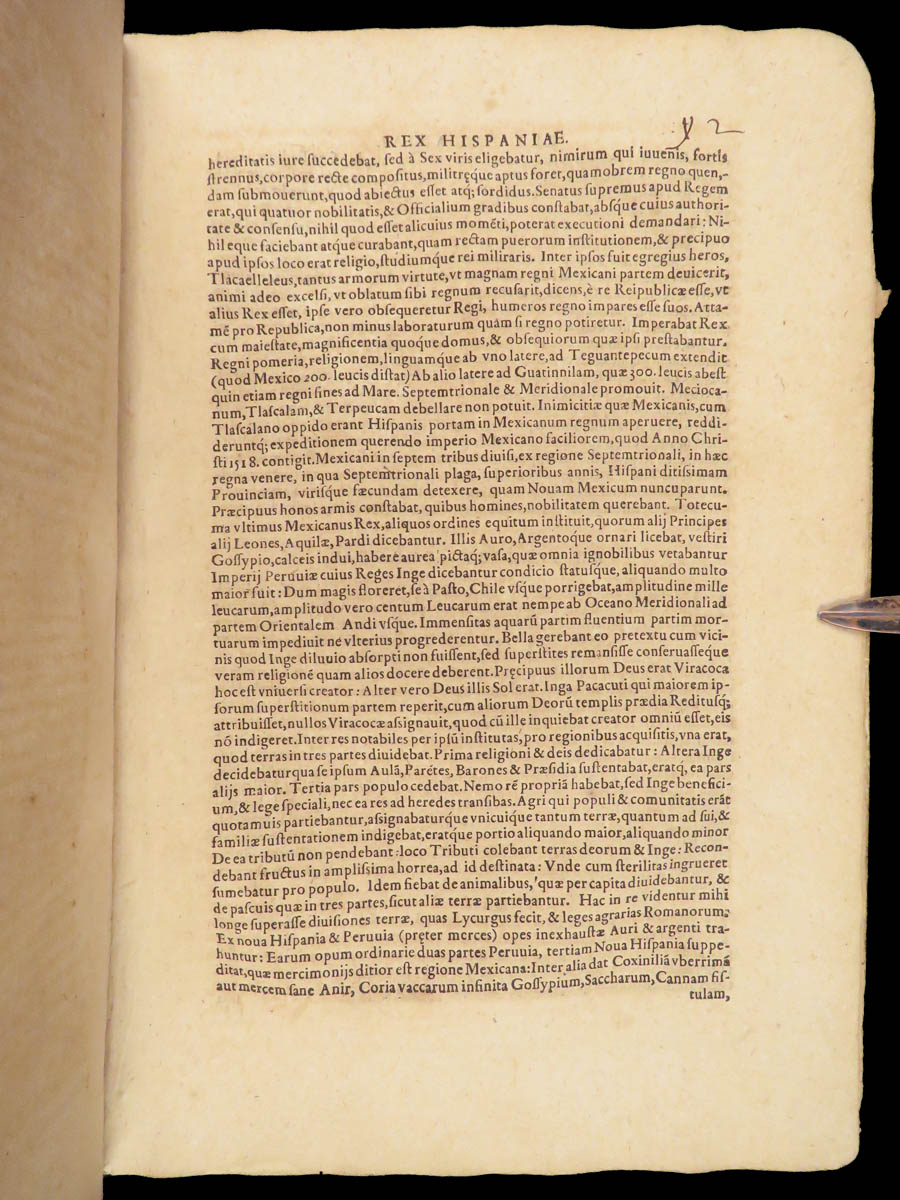 y 2
REX HISPANIAE.
hereditatis iure ſuccedebat, ſed à Sex viris eligebatur, nimirum qui iuuenis, fortis
ſtrennus, corpore recte compoſitus, militręque aptus foret, quamobrem regno quen,-
dam ſubmouerunt, quod abiectus eſſet atq; ſordidus. Senatus ſupremus apud Regem
erat, qui quatuor nobilitatis, & Officialium gradibus conſtabat, abſque cuius authori-
tate & conſenſu, nihil quod eſſet alicuius momẽti, poterat executioni demandari: Ni-
hil eque faciebant atque curabant, quam rectam puerorum inſtitutionem, & precipuo
apud ipſos loco erat religio, ſtudiumque rei miliraris. Inter ipſos fuit egregius heros,
Tlacaelleleus, tantus armorum virtute, vt magnam regni Mexicani partem deuicerit,
animi adeo excelſi, vt oblatum ſibi regnum recuſarit, dicens, è re Reipublicæ eſſe, vt
alius Rex eſſet, ipſe vero obſequeretur Regi, humeros regno impares eſſe ſuos. Atta-
mẽ pro Republica, non minus laboraturum quàm ſi regno potiretur. Imperabat Rex
cum maieſtate, magnificentia quoque domus, & obſequiorum quæ ipſi preſtabantur.
Regni pomeria, religionem, linguamque ab vno latere, ad Teguantepecum extendit
(quod Mexico 200. leucis diſtat) Ab alio latere ad Guatinnilam, quæ 300. leucis abeſt
quin etiam regni fines ad Mare. Septemtrionale & Meridionale promouit. Mecioca-
num, Tlaſcalam, & Terpeucam debellare non potuit. Inimicitiæ quæ Mexicanis, cum
Tlaſcalano oppido erant Hiſpanis portam in Mexicanum regnum aperuere, reddi-
deruntq; expeditionem querendo imperio Mexicano faciliorem, quod Anno Chri-
ſti 1518. contigit. Mexicani in ſeptem tribus diuiſi, ex regione Septemtrionali, in hæc
regna venere, in qua Septemtrionali plaga, ſuperioribus annis, Hiſpani ditiſſimam
Prouinciam, viriſque fæcundam detexere, quam Nouam Mexicum nuncuparunt.
Præcipuus honos armis conſtabat, quibus homines, nobilitatem querebant. Totecu-
ma vltimus Mexicanus Rex, aliquos ordines equitum inſtituit, quorum alij Principes
alij Leones, Aquilæ, Pardi dicebantur. Illis Auro, Argentoque ornari licebat, veſtiri
Goſſypio, calceis indui, habere aurea pictaq; vaſa, quæ omnia ignobilibus vetabantur
Imperij Peruuiæ cuius Reges Inge dicebantur condicio ſtatuſque, aliquando multo
maior fuit: Dum magis floreret, ſe à Paſto, Chile vſque porrigebat, amplitudine mille
leucarum, amplitudo vero centum Leucarum erat nempe ab Oceano Meridionali ad
partem Orientalem Andi vſque. Immenſitas aquarũ partim fluentium partim mor-
tuarum impediuit ne vlterius progrederentur. Bella gerebant eo pretextu cum vici-
nis quod Inge diluuio abſorpti non fuiſſent, ſed ſuperſtites remanſiſſe conſeruaſſeque
veram religionẽ quam alios docere deberent. Pręcipuus illorum Deus erat Viracoca
hoc eſt vniuerſi creator: Alter vero Deus illis Sol erat. Inga Pacacuti qui maiorem ip-
ſorum ſuperſtitionum partem reperit, cum aliorum Deorũ templis prædia Redituſq;
attribuiſſet, nullos Viracocæ aſsignauit, quod cũ ille inquiebat creator omniũ eſſet, eis
nõ indigeret. Inter res notabiles per ipſũ inſtitutas, pro regionibus acquiſitis, vna erat,
quod terras in tres partes diuidebat. Prima religioni & deis dedicabatur: Altera Inge
decidebatur qua ſe ipſum Aulã, Parẽtes, Barones & Præſidia ſuſtentabat, eratq́, ea pars
alijs maior. Tertia pars populo cedebat. Nemo rẽ propriã habebat, ſed Inge benefici-
um, & lege ſpeciali, nec ea res ad heredes tranſibas. Agri qui populi & comunitatis erãt
quotamuis partiebantur, aſsignabaturque vnicuique tantum terræ, quantum ad ſui, &
familiæ ſuſtentationem indigebat, eratq́ue portio aliquando maior, aliquando minor
De ea tributũ non pendebant: loco Tributi colebant terras deorum & Inge: Recon-
debant fructus in ampliſsima horrea, ad id deſtinata: Vnde cum ſterilitas ingrueret
ſumebatur pro populo. Idem fiebat de animalibus, quæ per capita diuidebantur, &
de paſcuis quæ in tres partes, ſicut aliæ terræ partiebantur. Hac in re videntur mihi
longe ſuperaſſe diuiſiones terræ, quas Lycurgus fecit, & leges agrarias Romanorum.
Ex noua Hiſpania & Peruuia (pręter merces) opes inexhauſtæ Auri & argenti tra-
huntur: Earum opum ordinarie duas partes Peruuia, tertiam Noua Hiſpania ſuppe-
ditat, quæ mercimonijs ditior eſt regione Mexicana: Inter alia dat Coxiniliã vberrimã
aut mercem ſane Anir, Coria vaccarum infinita Goſſypium, Saccharum, Cannam fiſ-
tulam,